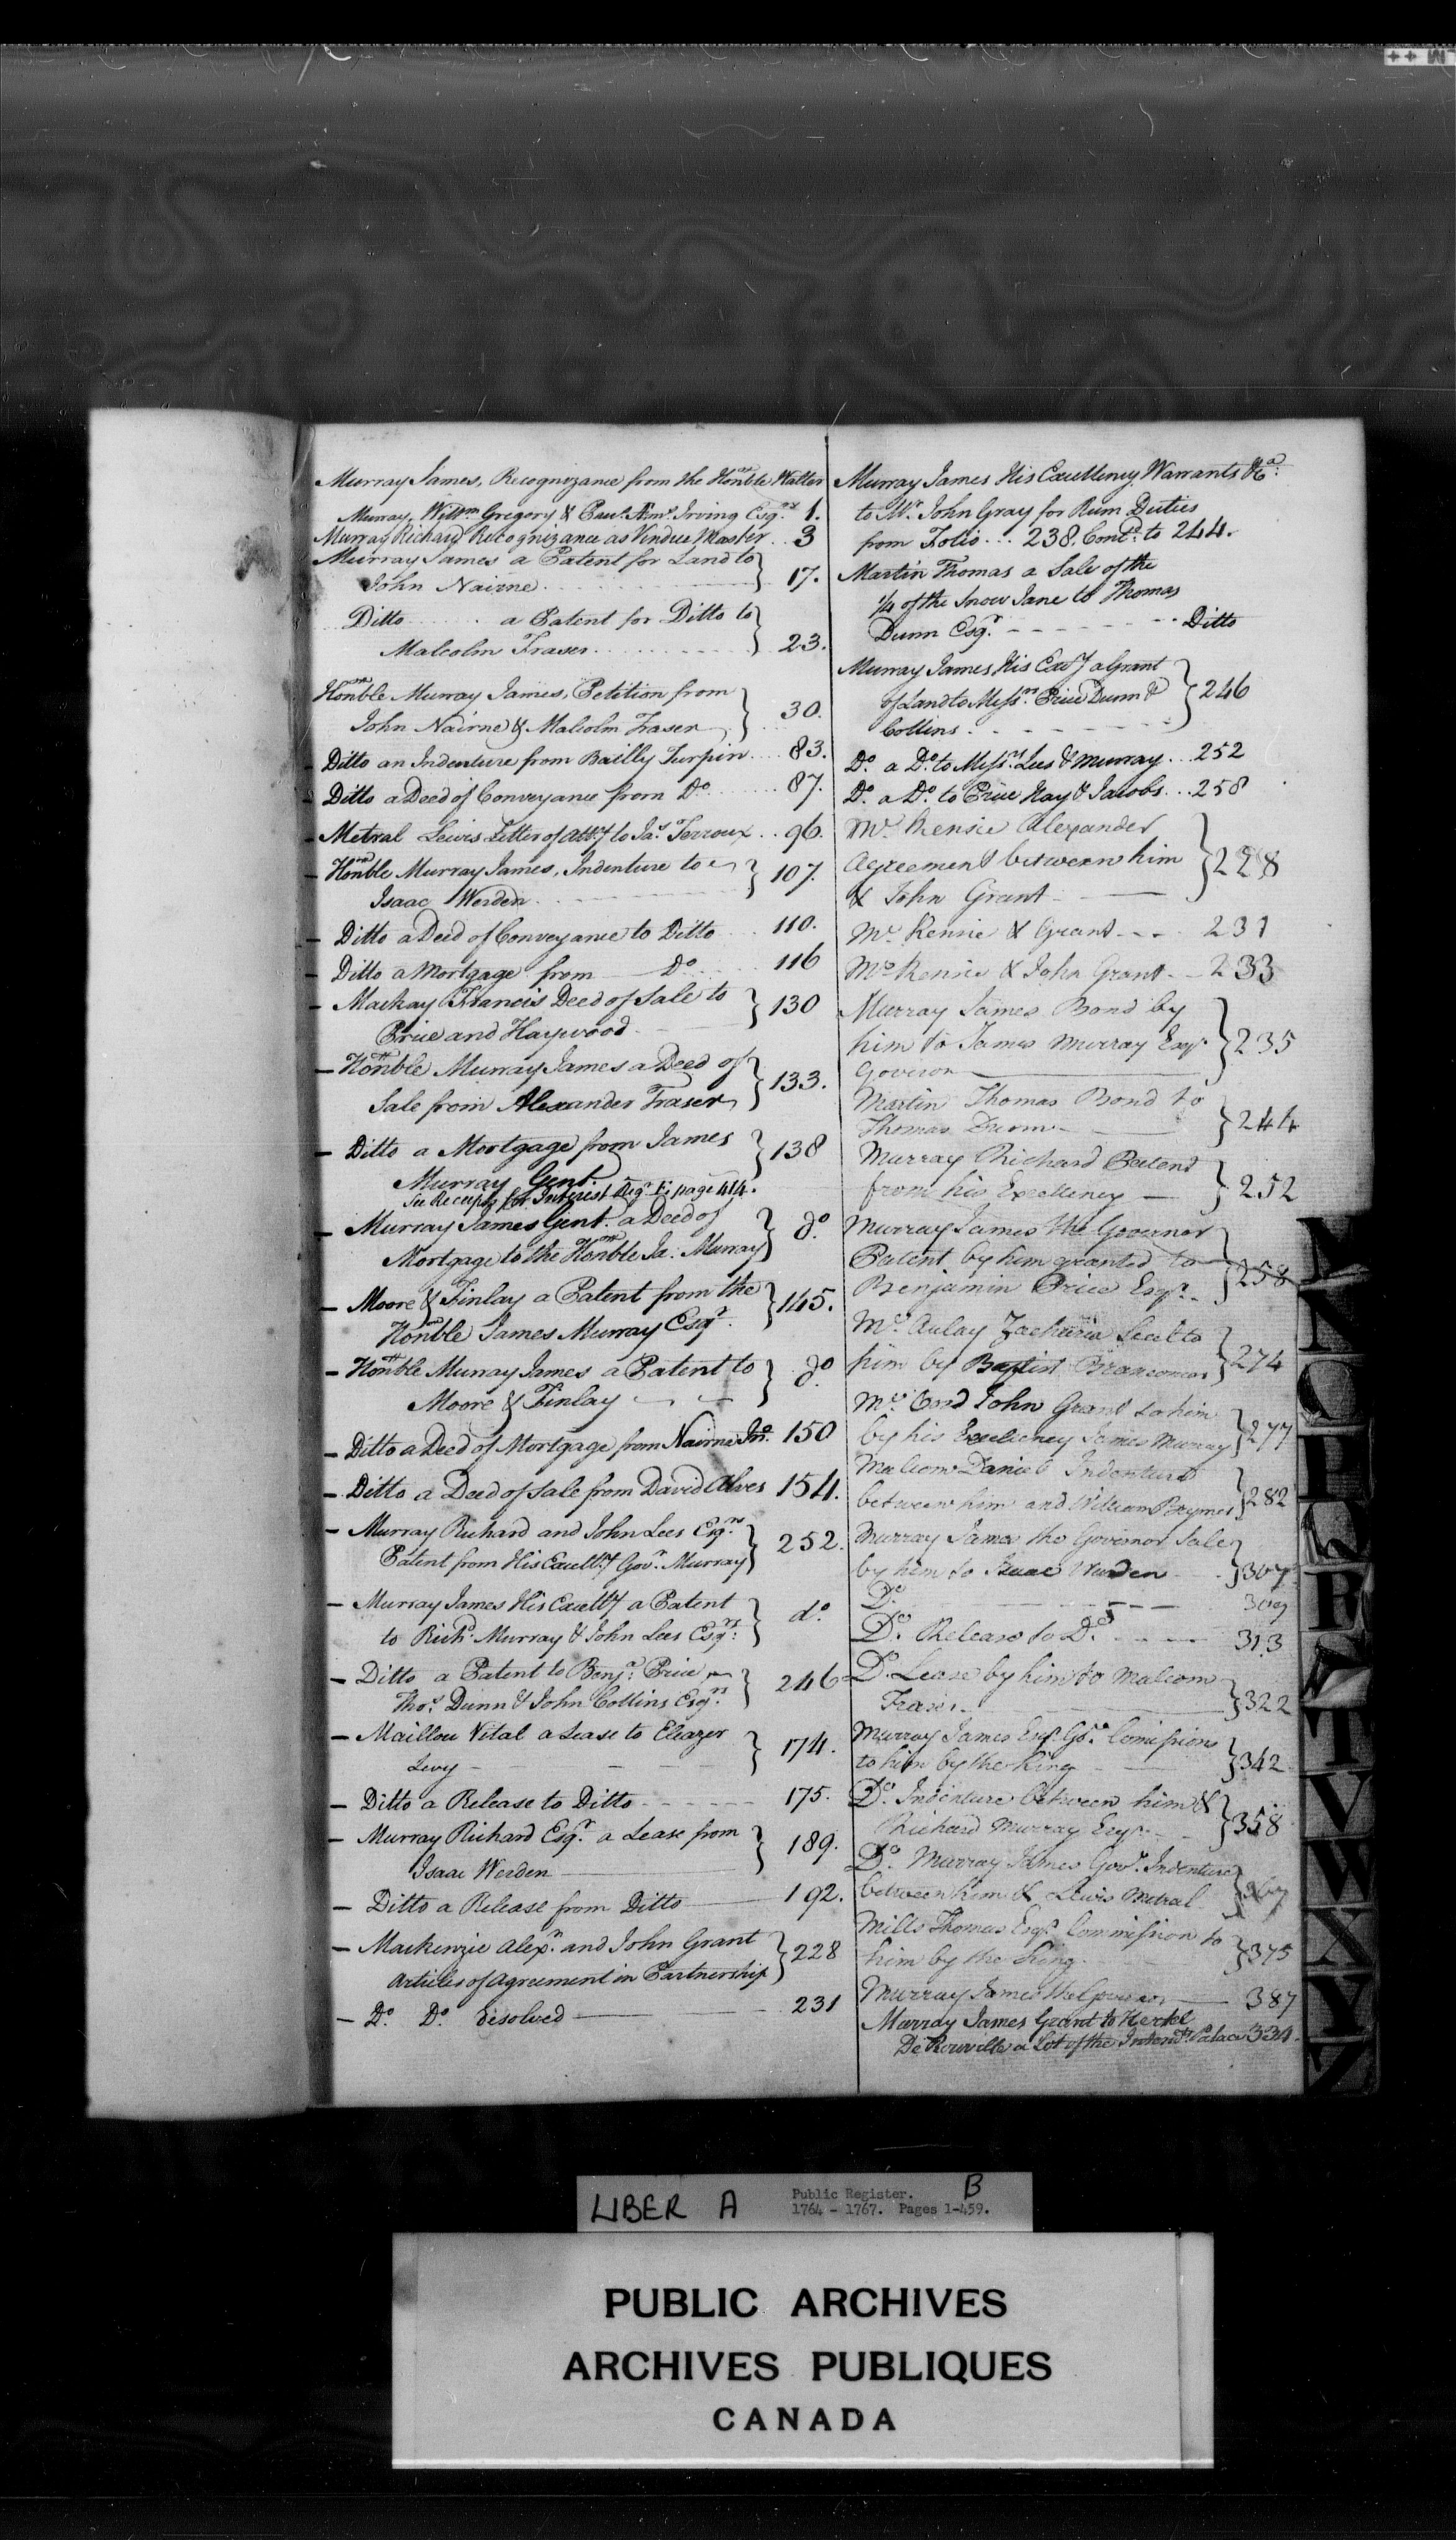 Murray James, Recognizance from the Honble Walter
Murray, Willm Gregory & Paul. Æml. Irving Esqrs 1.
Murray Richard Recognizance as Vendue Master .. 3
Murray James a Patent for Land to
John Nairne } 17.
Ditto a Patent for Ditto to
Malcolm Fraser } 23.
Honble Murray James, Petition from
John Nairne & Malcolm Fraser } 30.
- Ditto an Indenture from Bailly Turpin ... 83.
- Ditto a Deed of Conveyance from Do. 87.
- Metral Lewis Letter of Atty to Jas. Terroux .. 96.
- Honble Murray James, Indenture to
Isaac Werden } 107.
- Ditto a Deed of Conveyance to Ditto 110.
- Ditto a Mortgage from Do. 116
- Mackay Francis Deed of Sale to
Price and Haywood } 130
- Honble Murray James a Deed of
Sale from Alexander Fraser } 133.
- Ditto a Mortgage from James
Murray Gent. } 138
See Receipts for Interest Regr. E; page 414.
- Murray James Gent. a Deed of
Mortgage to the Honble Ja. Murray } do.
- Moore & Finlay a Patent from the
Honble James Murray Esqr. } 145.
- Honble Murray James a Patent to
Moore & Finlay } do.
- Ditto a Deed of Mortgage from Nairne Jno. 150
- Ditto a Deed of Sale from David Alves 154.
- Murray Richard and John Lees Esqrs
Patent from His Excelly Govr. Murray } 252.
- Murray James His Excelly a Patent
to Richd. Murray & John Lees Esqrs: } do.
- Ditto a Patent to Benja. Price
Thos. Dunn & John Collins Esqrs } 246
- Maillou Vital a Lease to Eleazer
Levy } 174.
- Ditto a Release to Ditto 175.
- Murray Richard Esqr. a Lease from
Isaac Werden } 189.
- Ditto a Release from Ditto 192.
- Mackenzie Alexr. and John Grant
Articles of Agreement in Partnership } 228
- Do. Do. Disolved 231
Murray James His Excellency Warrants &ca:
to Mr. John Gray for Rum Duties
from Folio ... 238. Contd. to 244.
Martin Thomas a Sale of the
1/4 of the Snow Jane to Thomas
Dunn Esqr. Ditto
Murray James His Excy a Grant
of Land to Messrs. Price Dunn &
Collins } 246
Do. a Do. to Messrs. Lees & Murray .. 252
Do. a Do. to Price Hay & Jacobs .. 258
Mc. Kensie Alexander
Agreement between him
& John Grant } 228
Mc. Kensie & Grant 231
Mc Kensie & John Grant 233
Murray James Bond by
him to James Murray Esqr.
Governor } 235
Martin Thomas Bond to
Thomas Dunn } 244
Murray Richard Patend
from his Excellency } 252
Murray James the Governor
Patent by him granted to
Benjamin Price Esqr. } 258
Mc. Aulay Zacharia
him by Baptist } 274
Mc. Cord John Grant to him
by his Excelency James Murray } 277
Malcom Daniel Indenture
between him and William Brymer } 282
Murray James the Governor Sale
by him to Isaac Wurden } 307
Do. 309
Do. Release to Do. 313
Do. Lease by him to Malcom
Fraser } 322
Murray James Esqr. Gor. Comissions
to him by the King } 342
Do. Indenture between him &
Richard Murray Esqr. } 358
Do. Murray James Govr. Indenture
between him & Lewis Metral } 367
Mills Thomas Esqr. Commission to
him by the King } 375
Murray James the Governor 387
Murray James Grant to Hertel
De Rouville a Lot of the Intendts. Palace 334.
N
O
T
V
W
X
Y
Z
LIBER A
B
Public Register.
1764 - 1767. Pages 1-459.
PUBLIC ARCHIVES
ARCHIVES PUBLIQUES
CANADA